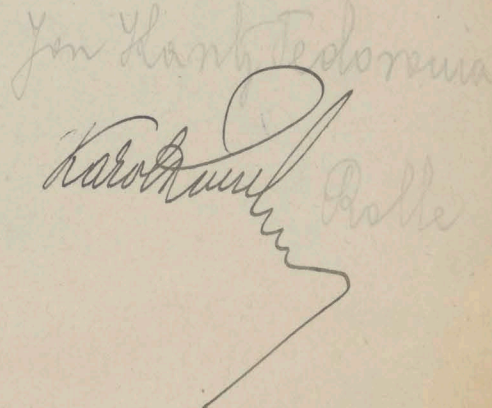 Jan Kanty Fedorowicz
Karol
Rolle